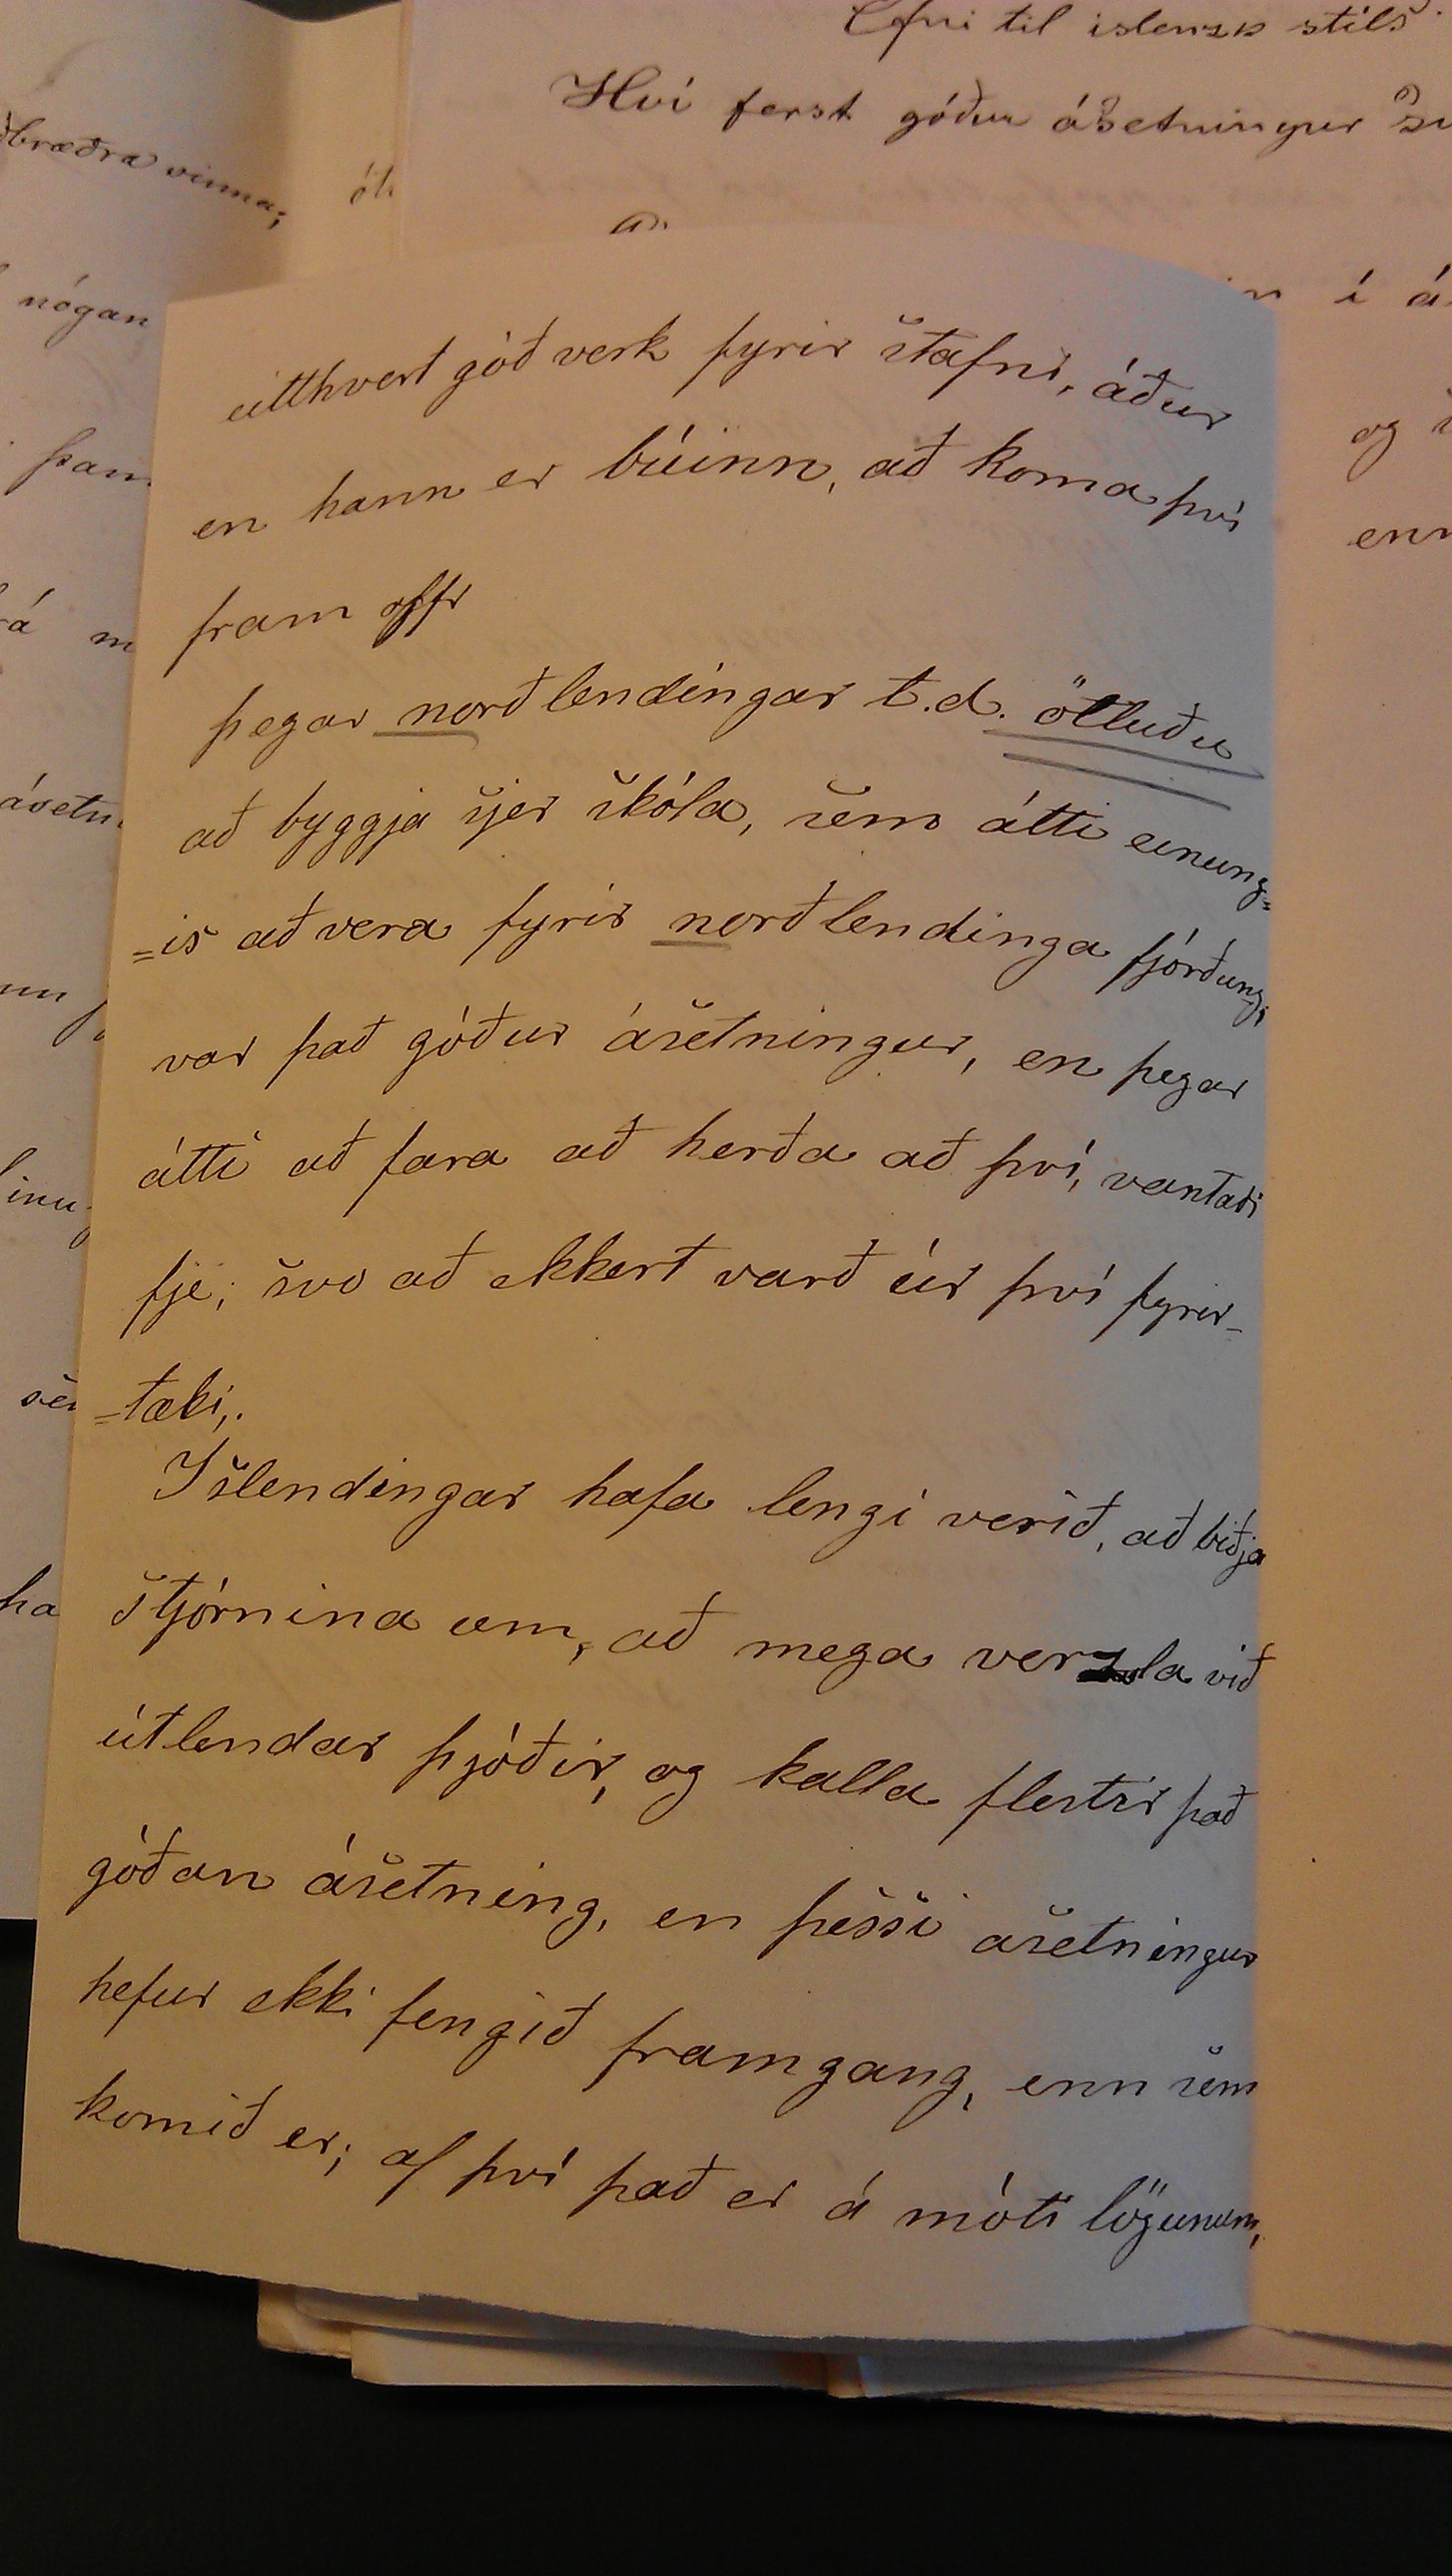 Efni til islenzk stíls
Hví ferst góður ásetningur
eitthvert góð verk fyrir stafni, áður
en hann er búinn, að koma því
fram
þegar norðlendingar t.d. ötluðu
að byggja sjer skóla, sem átti einung=
=is að vera fyrir norðlendinga fjórðung,
var það góður ásetningur, en þegar
átti að fara að herða að því, vantaði
fje; svo að ekkert varð úr því fyrir-
=tæki,.
Islendingar hafa lengi verið, að biðja
stjórnina um, að mega verzla við
útlendar þjóðir, og kalla flestir það
góðan ásetning, en þessi ásetningur
hefur ekki fengið framgang, enn sem
komið er; af því það er á móti lögunum,
bræðra vinna;
nógan
í á
og